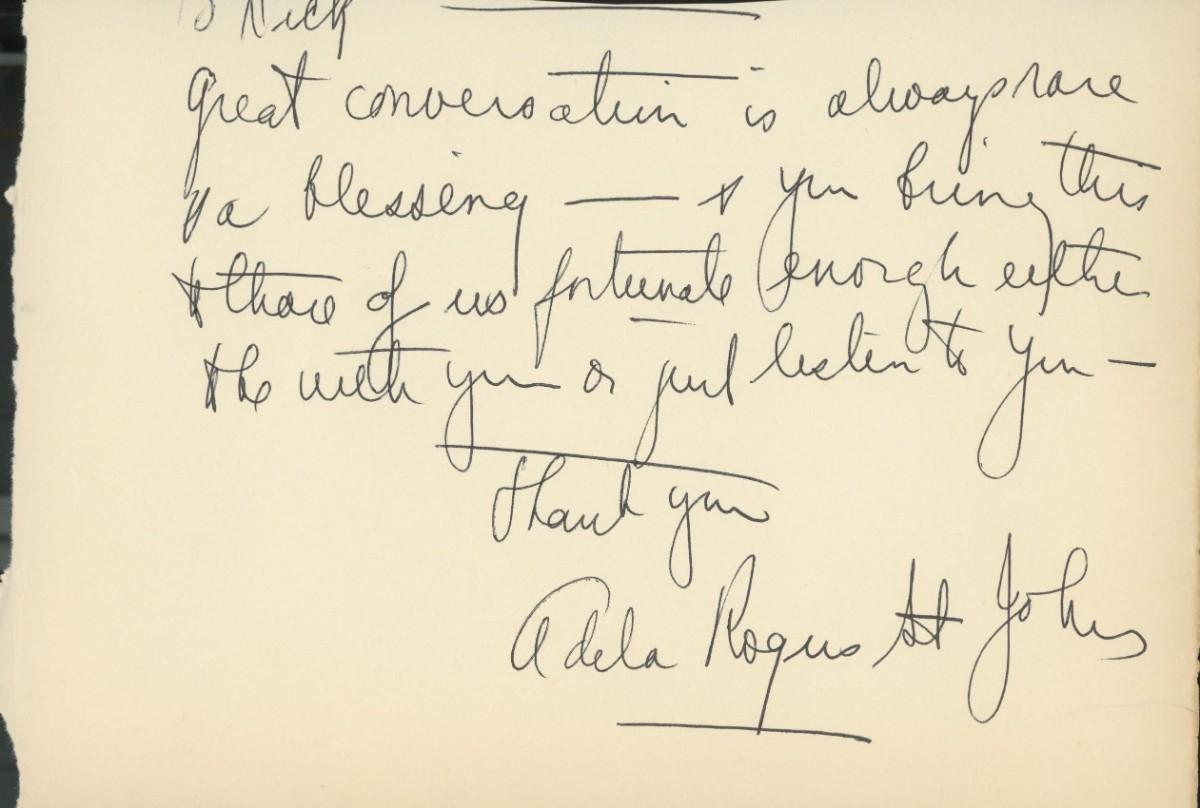 To Dick
Great conversation is always rare
& a blessing — & you bring this
to those of us fortunate enough either
to be with you or just listen to you —
Thank you
Adela Rogers St Johns